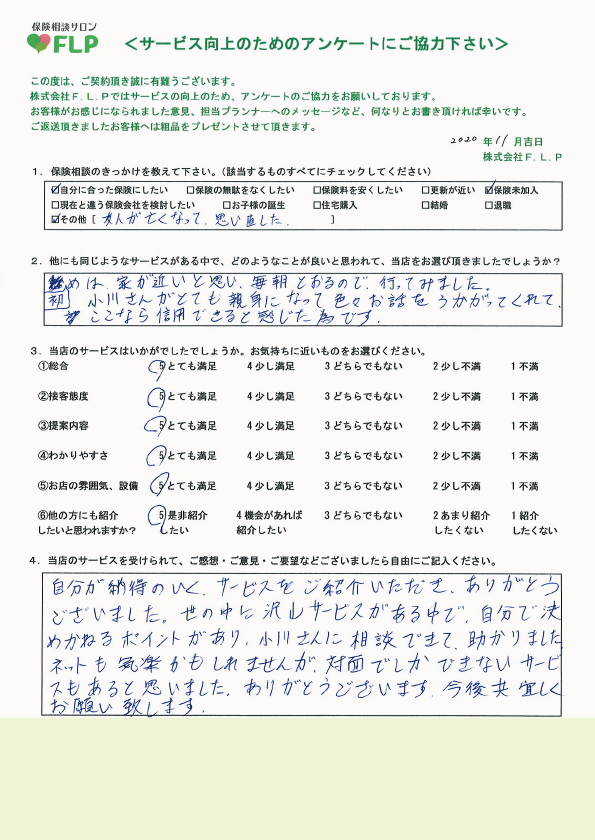 保険相談サロン
FLP
＜サービス向上のためのアンケートにご協力下さい＞
この度は、ご契約頂き誠に有難うございます。
株式会社Ｆ.Ｌ.Ｐではサービスの向上のため、アンケートのご協力をお願いしております。
お客様がお感じになられました意見、担当プランナーへのメッセージなど、何なりとお書き頂ければ幸いです。
ご返送頂きましたお客様へは粗品をプレゼントさせて頂きます。
2020 年 11 月吉日
株式会社Ｆ.Ｌ.Ｐ
１．保険相談のきっかけを教えて下さい。（該当するものすべてにチェックしてください）
☑自分に合った保険にしたい □保険の無駄をなくしたい □保険料を安くしたい □更新が近い ☑保険未加入
□現在と違う保険会社を検討したい □お子様の誕生 □住宅購入 □結婚 □退職
☑その他 [ 友人が亡くなって、思い直した。 ]
２．他にも同じようなサービスがある中で、どのようなことが良いと思われて、当店をお選び頂きましたでしょうか？
初めは、家が近いと思い、毎朝とおるので、行ってみました。
小川さんがとても親身になって色々お話をうかがってくれて、
ここなら信用できると感じた為です。
３．当店のサービスはいかがでしたでしょうか。お気持ちに近いものをお選びください。
①総合 5とても満足 4少し満足 3どちらでもない 2少し不満 1不満
②接客態度 5とても満足 4少し満足 3どちらでもない 2少し不満 1不満
③提案内容 5とても満足 4少し満足 3どちらでもない 2少し不満 1不満
④わかりやすさ 5とても満足 4少し満足 3どちらでもない 2少し不満 1不満
⑤お店の雰囲気、設備 5とても満足 4少し満足 3どちらでもない 2少し不満 1不満
⑥他の方にも紹介 5是非紹介 4機会があれば 3どちらでもない 2あまり紹介 1紹介
したいと思われますか？ したい 紹介したい したくない したくない
４．当店のサービスを受けられて、ご感想・ご意見・ご要望などございましたら自由にご記入ください。
自分が納得のいく、サービスをご紹介いただき、ありがとう
ございました。世の中に沢山サービスがある中で、自分で決
めかねるポイントがあり、小川さんに相談できて、助かりました
ネットも気楽かもしれませんが、対面でしかできないサービ
スもあると思いました。ありがとうございます。今後共宜しく
お願い致します。